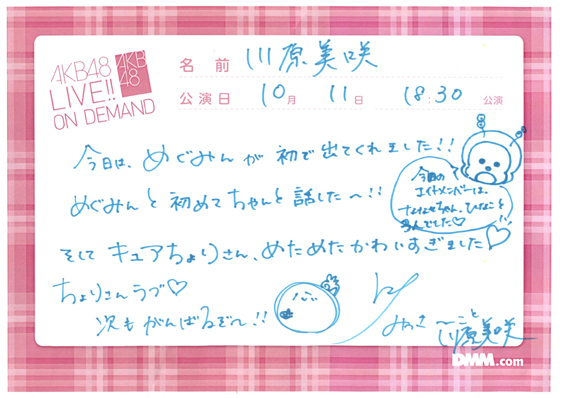 AKB48
LIVE!!
ON DEMAND
AKB
48
名前 川原美咲
公演日 10月 11日 18:30 公演
今日は、めぐみんが初で出てくれました!!
めぐみんと初めてちゃんと話したー!!
今日の
エイトメンバーは、
ななせちゃん、ひなこと
3人でした♡
そして キュアちょりさん、めためたかわいすぎました♡
ちょりさんラブ♡
次もがんばるぞー!!
みっきーこと
川原美咲
DMM.com